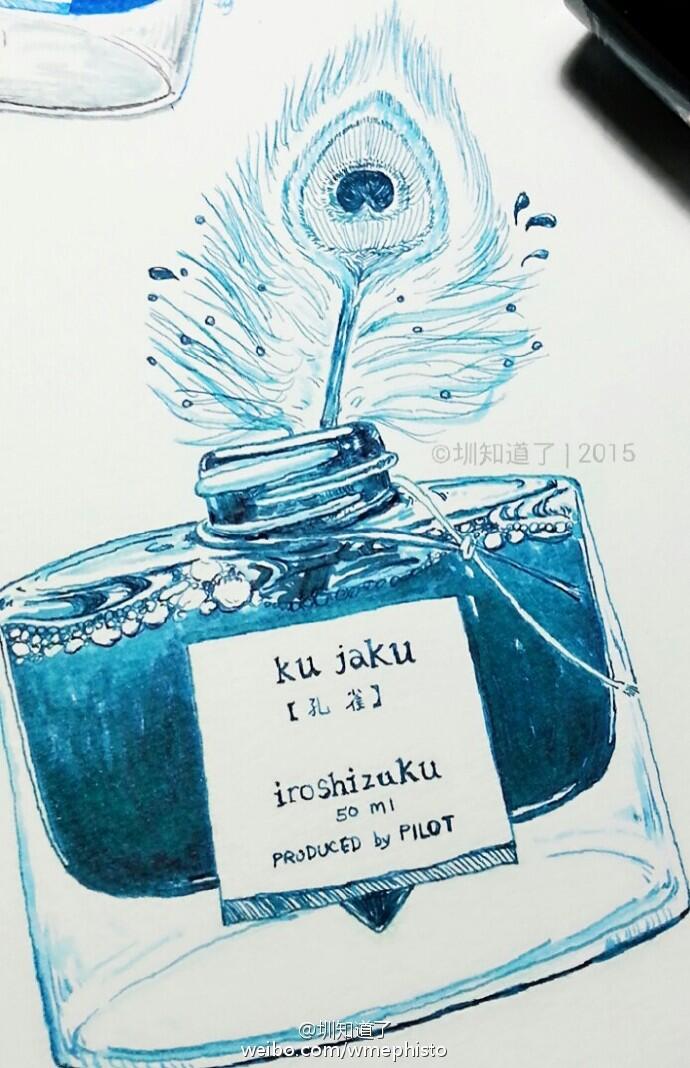 ©圳知道了 | 2015
ku jaku
【孔 雀】
iroshizuku
50 ml
PRODUCED by PILOT
@圳知道了
weibo.com/wmephisto